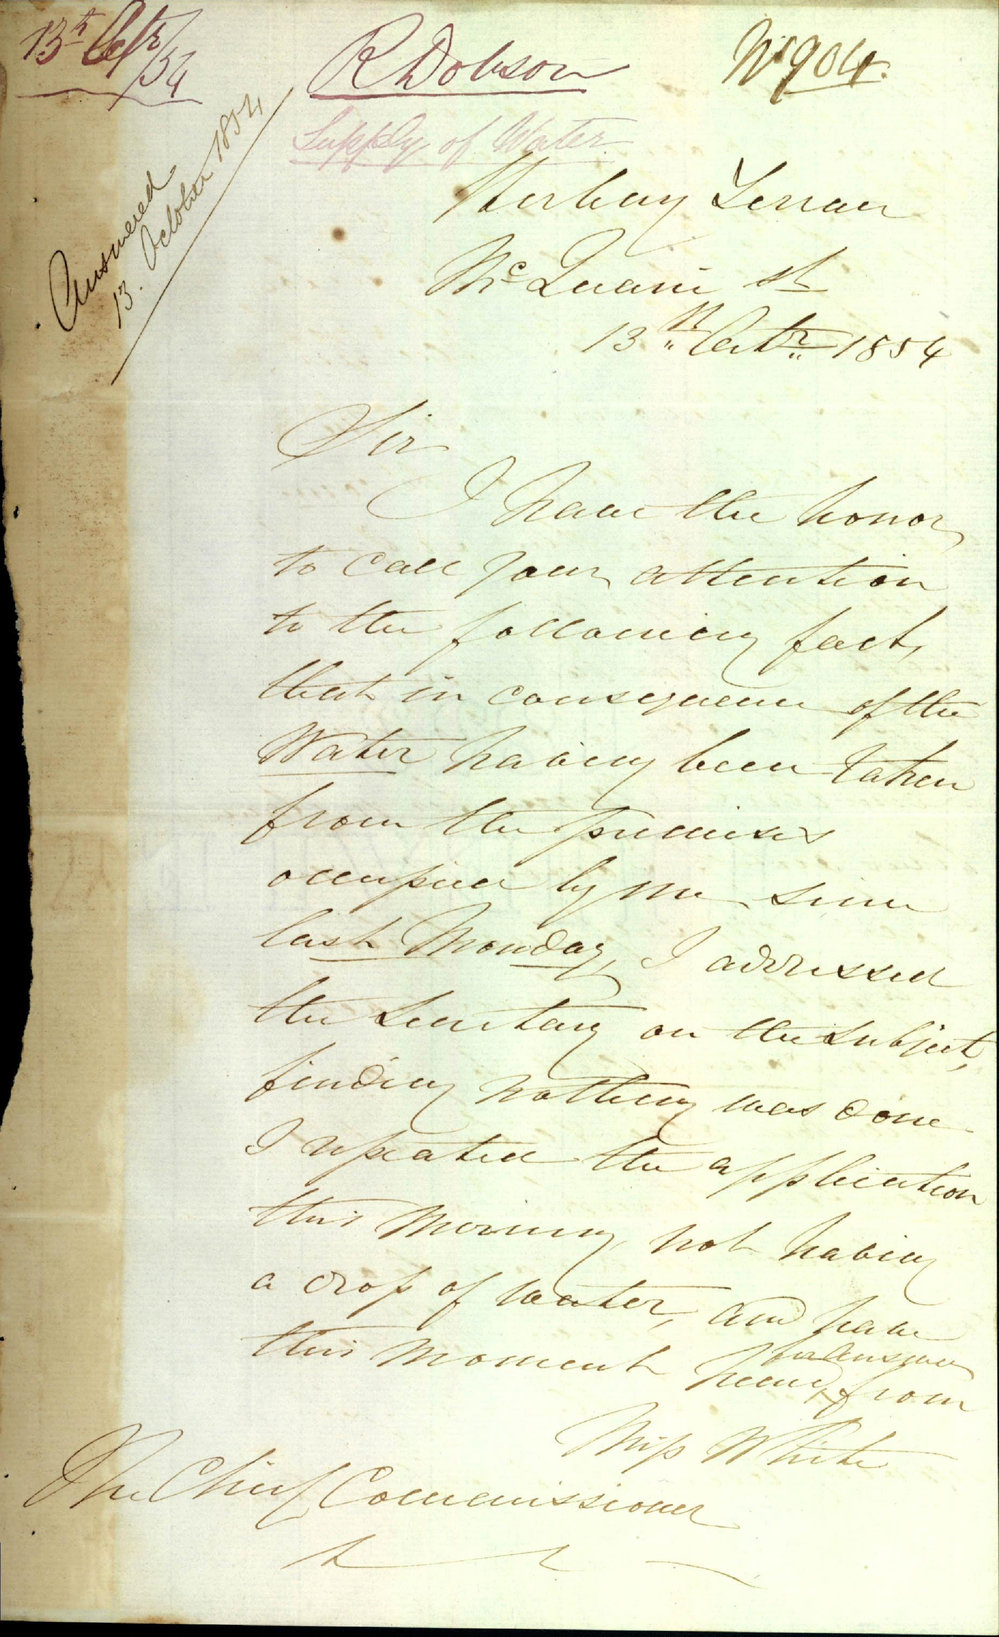 13th Octr/54
R Dobson
No 904.
Supply of Water.
Answered
13. October 1854
Terrace
McQuarie St
13th Octr 1854
Sir
I have the honor
to call your attention
to the following fact,
that in consequence of the
Water having been taken
from the premises
occupied by me since
last Monday, I addressed
the Secretary on the subject,
finding nothing was done
I repeated the application
this morning not having
a drop of water, and have
this moment heard, in answer from
Miss White
The Chief Commissioner